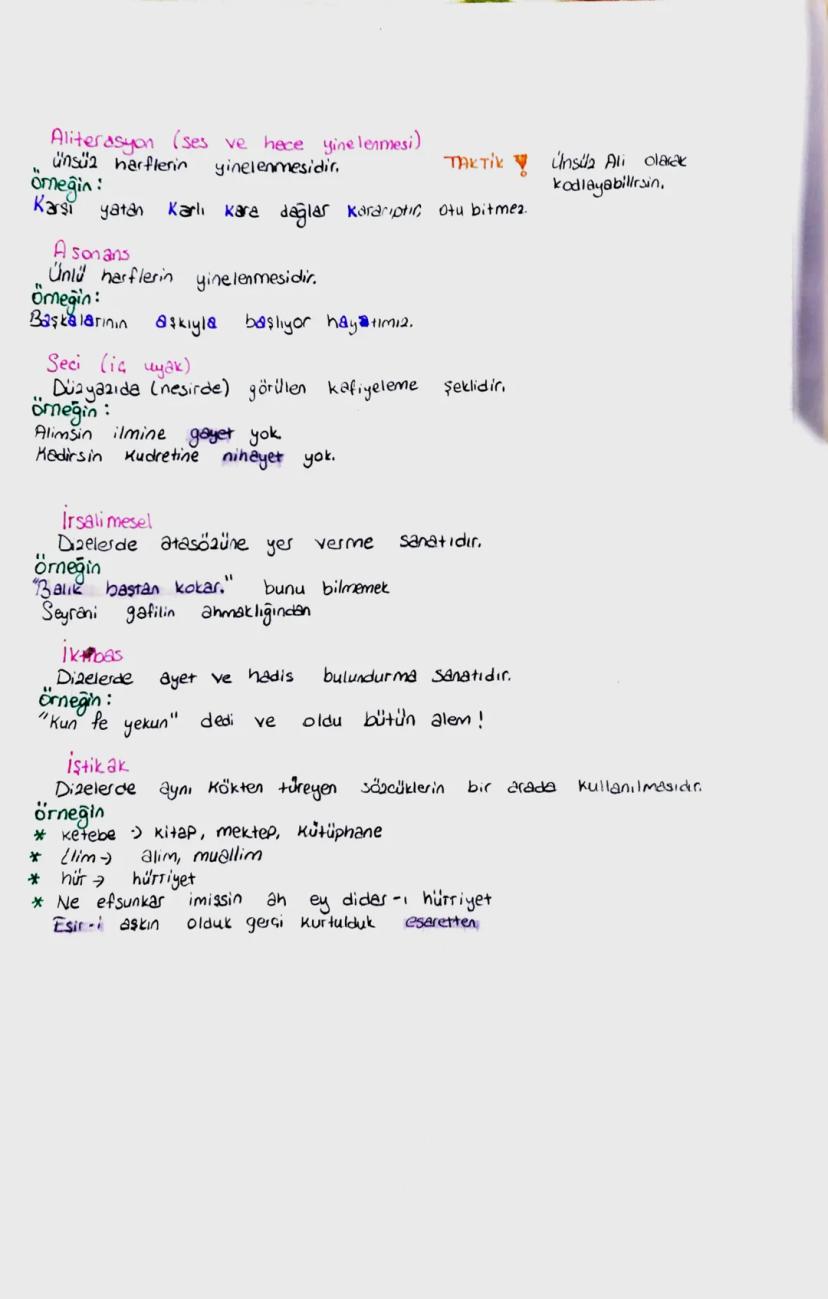 Aliterasyon (ses ve hece yinelenmesi)
ünsüz harflerin yinelenmesidir. TAKTİK ! Ünsüz Ali olarak
kodlayabilirsin.
örneğin:
Karşı yatan Karlı Kara dağlar Kararıptır, otu bitmez.
Asonans
Ünlü harflerin yinelenmesidir.
örneğin:
Başkalarının aşkıyla başlıyor hayatımız.
Seci (iç uyak)
Düzyazıda (nesirde) görülen kafiyeleme şeklidir.
örneğin:
Alimsin ilmine gayet yok.
Kadirsin Kudretine nihayet yok.
İrsalimesel
Dizelerde atasözüne yer verme sanatıdır.
örneğin
"Balık baştan kokar." bunu bilmemek
Seyrani gafilin ahmaklığından
İktibas
Dizelerde ayet ve hadis bulundurma sanatıdır.
örneğin:
"Kun fe yekun" dedi ve oldu bütün alem!
İştikak
Dizelerde aynı Kökten türeyen sözcüklerin bir arada kullanılmasıdır.
örneğin
* ketebe -> kitap, mektep, Kütüphane
* İlim -> alim, muallim
* hür -> hürriyet
* Ne efsunkar imissin ah ey didar-ı hürriyet
Esir-i aşkın olduk gerçi kurtulduk esaretten